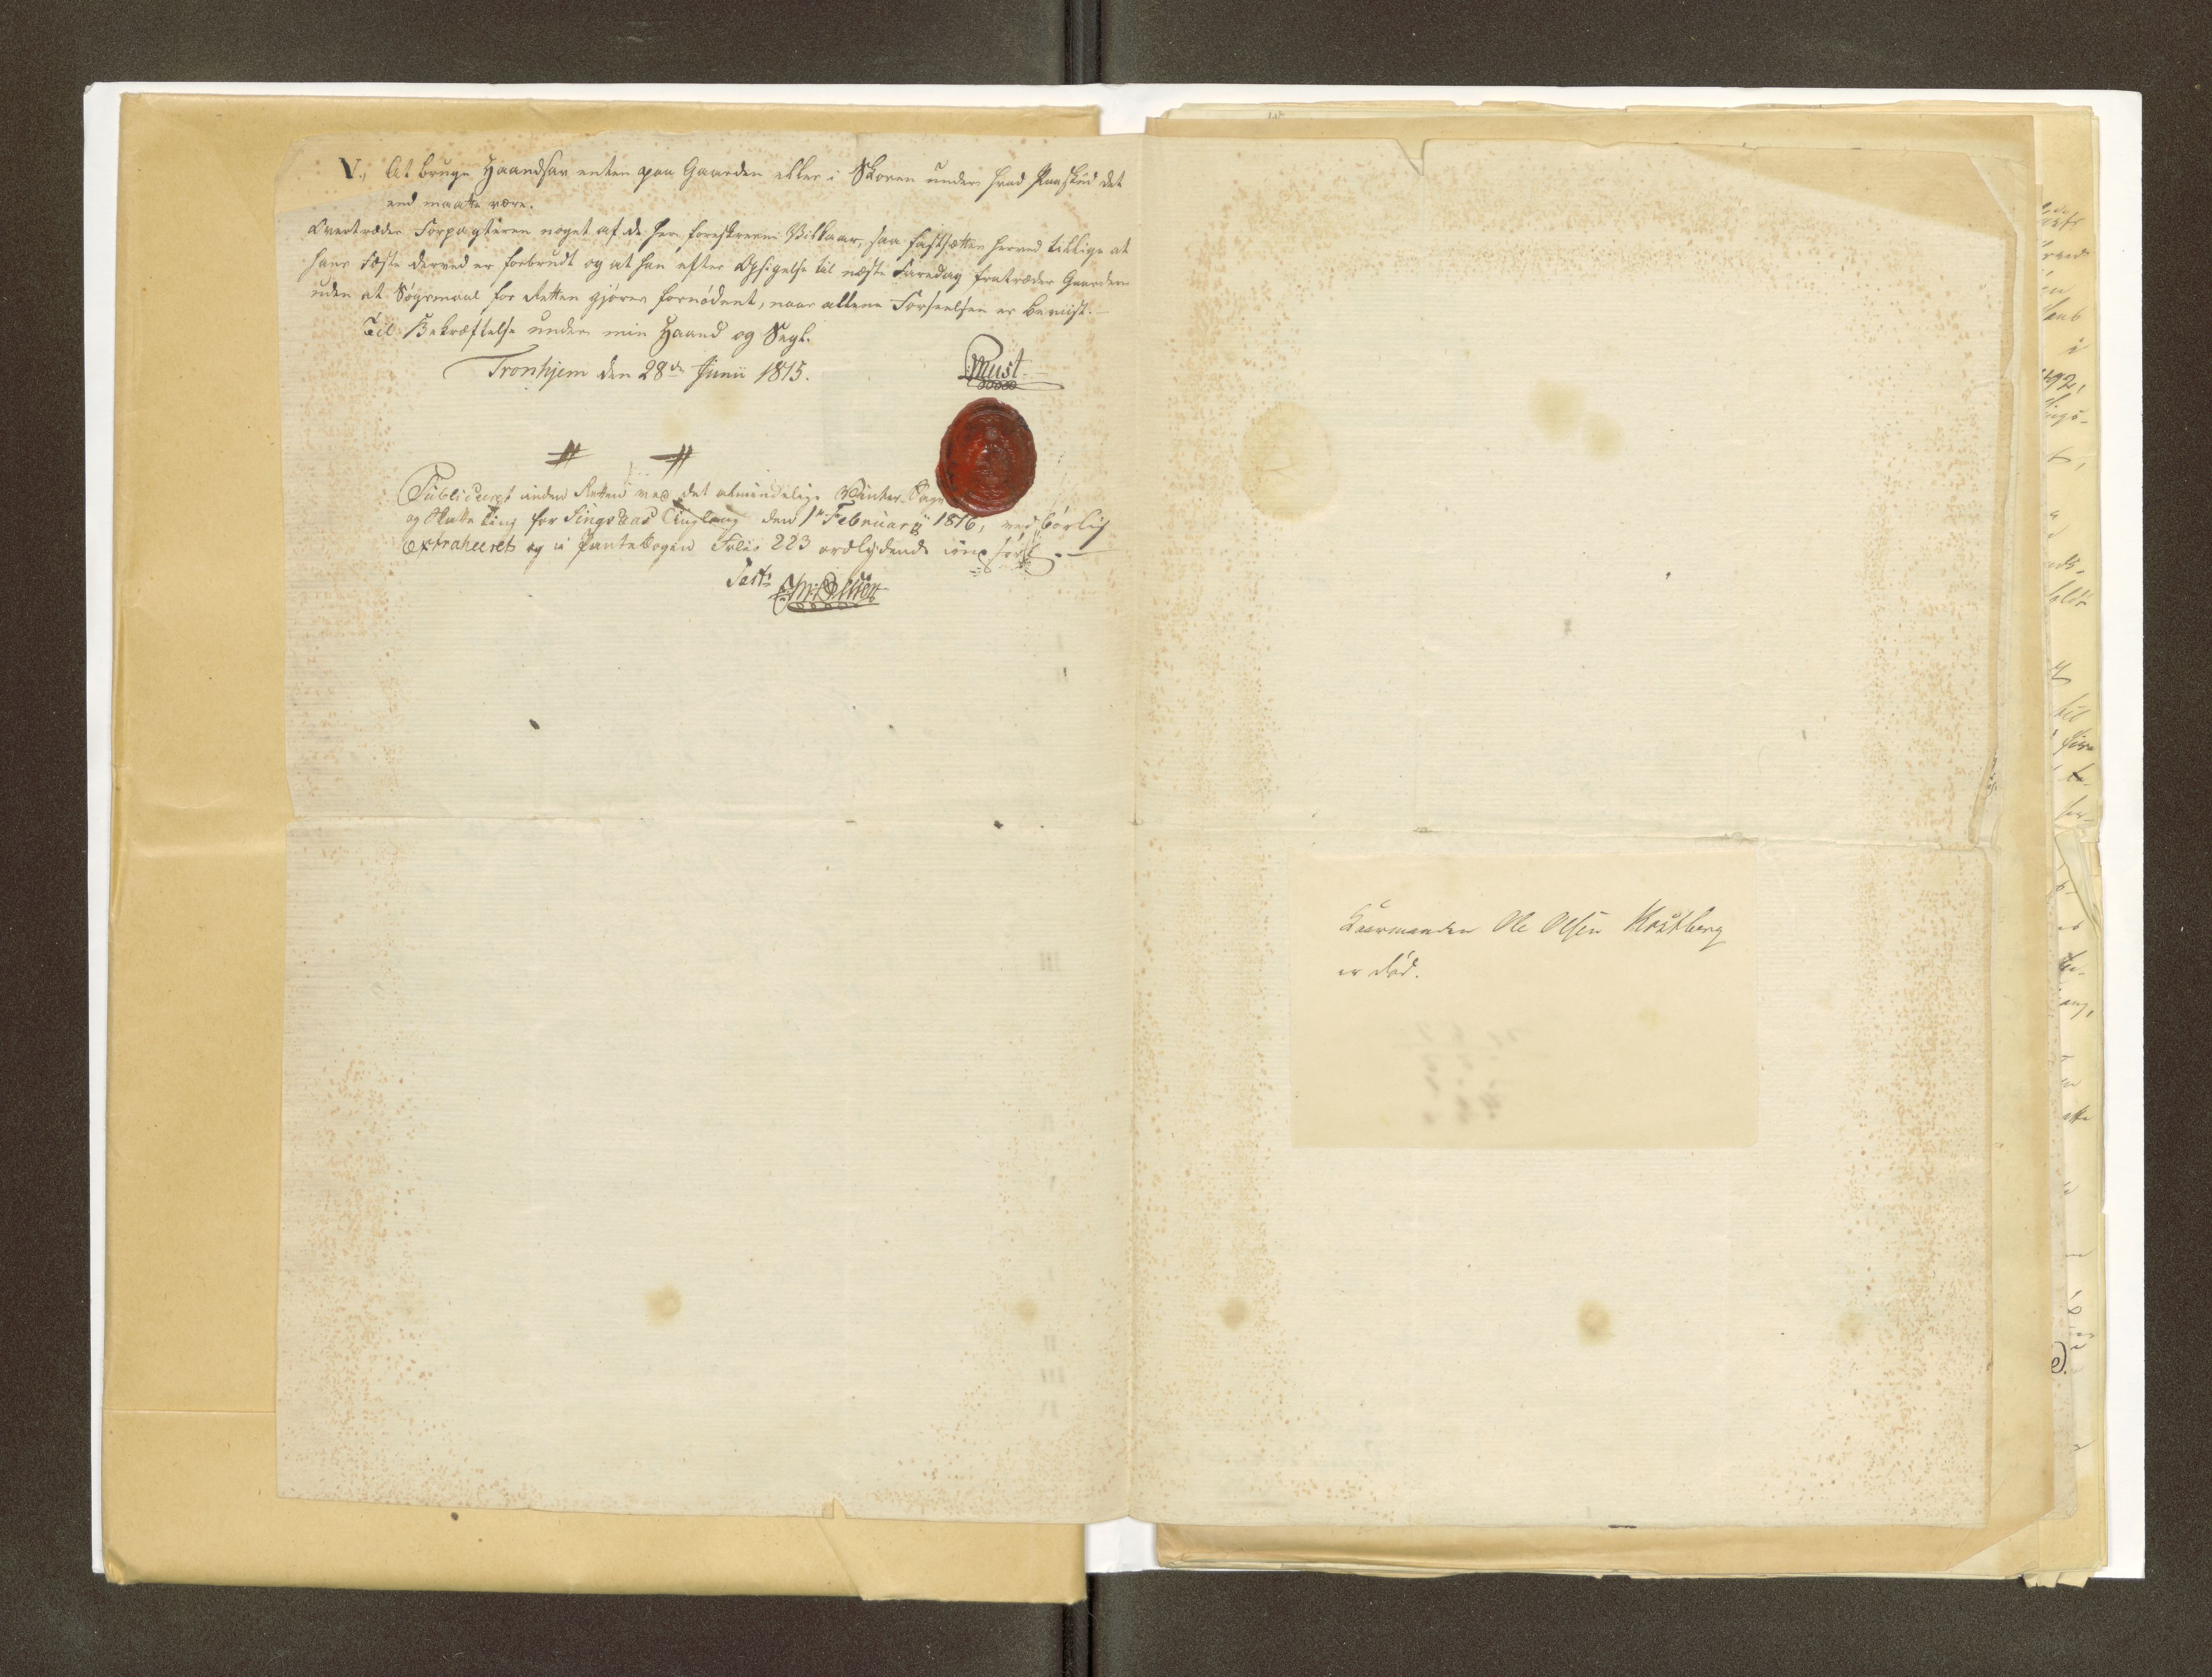 V., At bruge Haandsav enten paa Gaarden eller i Skoven under hvad Paaskud det
end maatte være.
Overtræder Forpagteren noget af de her foreskrevne Vilkaar, saa fastsættes herved tillige at
hans Fæste derved er forbrudt og at han efter Opsigelse til næste Faredag fratræder Gaarden
uden at Søgsmaal for Retten gjøres fornødent, naar allene Forseelsen er beviist.—
Til Bekræftelse under min Haand og Segl.
Tronhjem den 28de Junii 1815.
Must
Publiceret inden Retten ved det almindelige Vinter-Sage
og Skatte Ting for Singsaas Tinglaug den 1te Februarij 1816, ved børlig
Extraheeret og i Pantebogen Folio 223 ordlydende indført.—
Test:
Kaarmanden Ole Olsen Kostberg
er død.